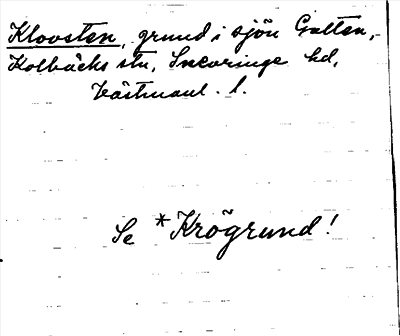 Klovsten, grund i sjön Galten,
Kolbäcks sn, Snevringe hd,
Västmanl. l.
Se *Krögrund!